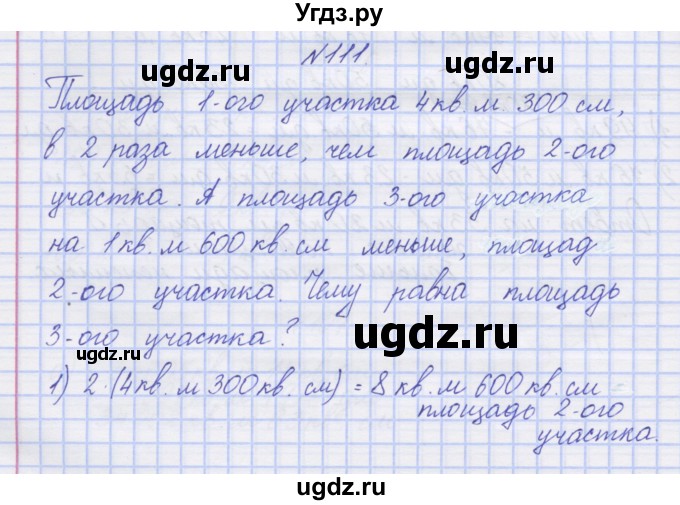 Угдз.ру
№111.
ugdz.ru ugdz.ru
Площадь 1-ого участка 4кв.м 300 см,
в 2 раза меньше, чем площадь 2-ого
участка. А площадь 3-ого участка
на 1кв.м 600кв.см меньше, площад
2-ого участка. Чему равна площадь
3-ого участка?
ugdz.ru
ugdz.ru
1) 2·(4кв.м 300кв.см) = 8кв.м 600кв.см
площадь 2-ого
участка.
ugdz.ru
ugdz.ru